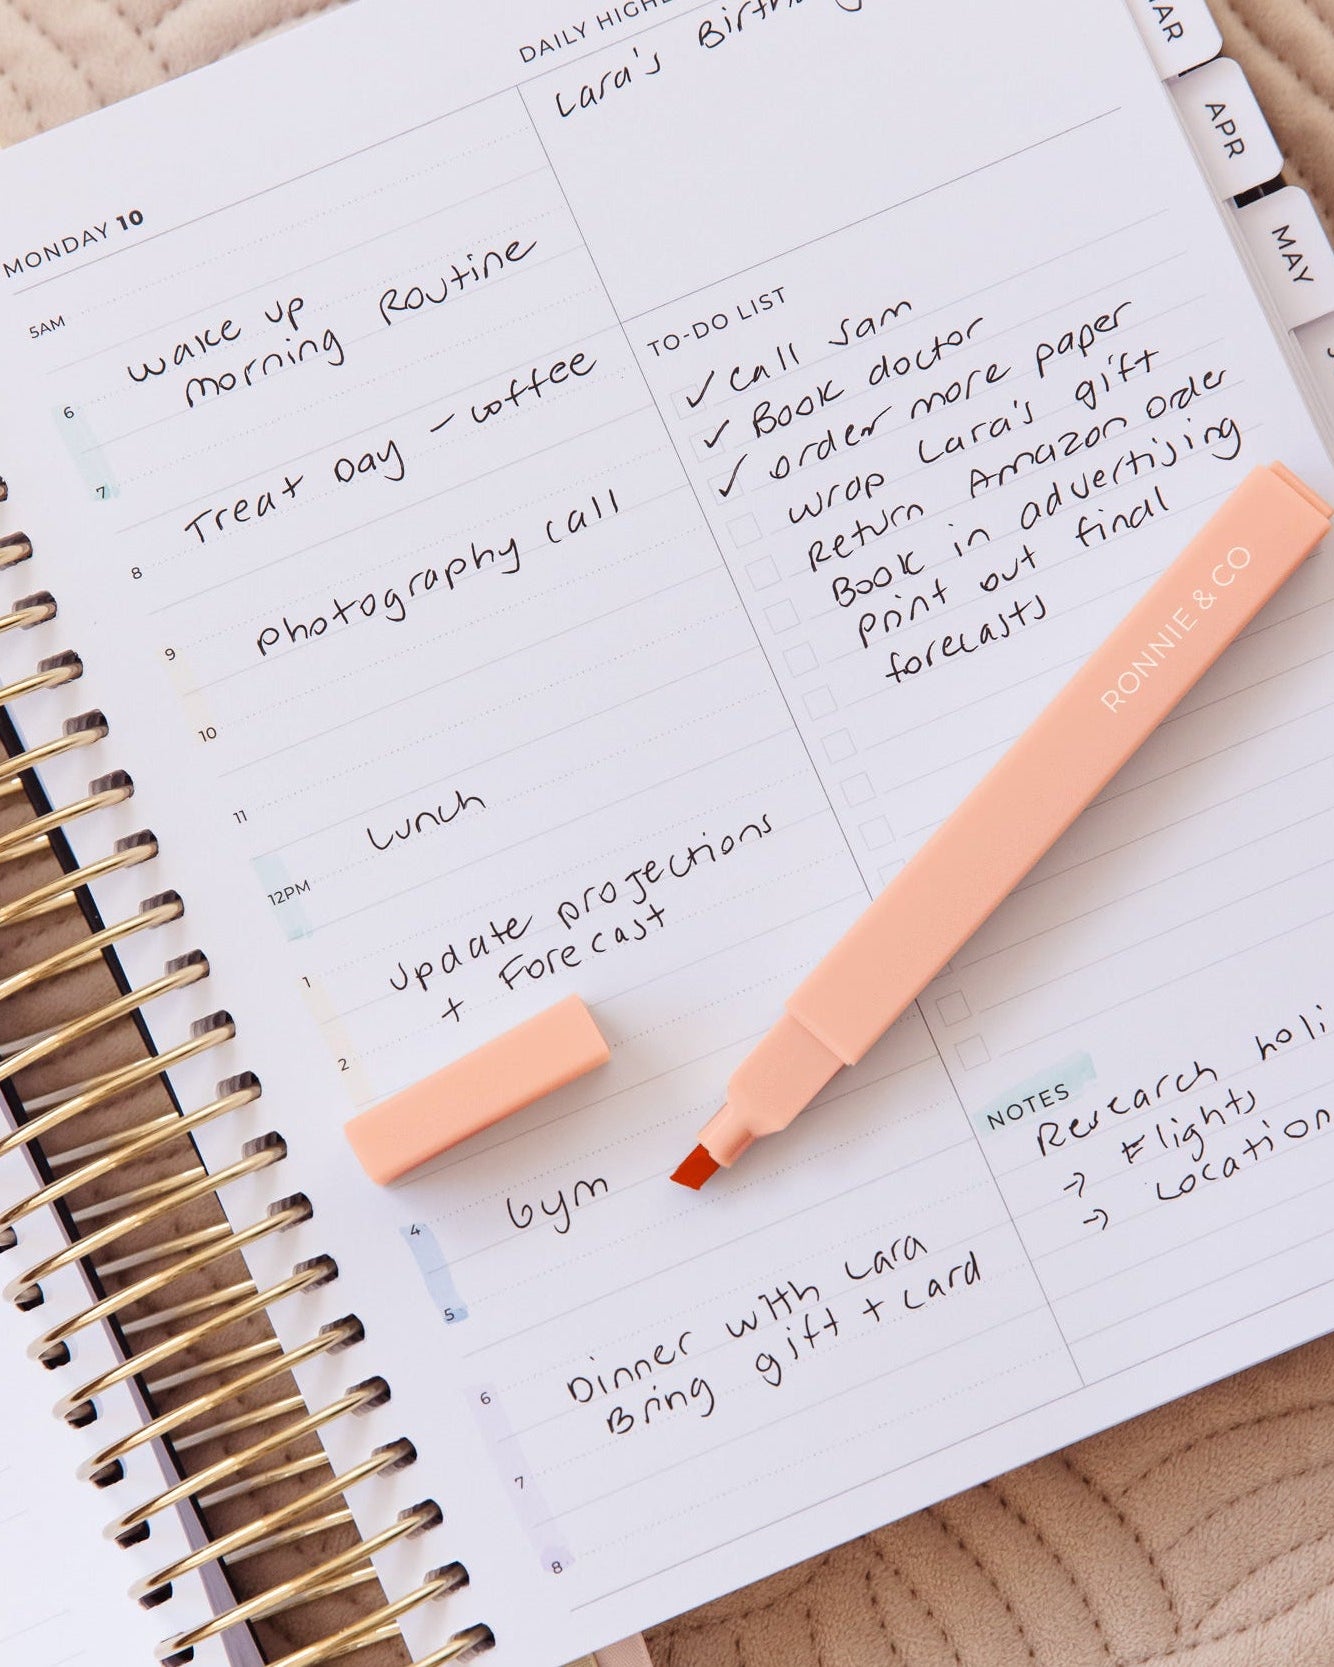 MONDAY 10
5AM
wake up
morning Routine
6
7
Treat Day - coffee
8
Photography call
9
10
11
Lunch
12PM
update projections
+ Forecast
1
2
4
Gym
5
6
Dinner with Lara
Bring gift + card
7
8
DAILY
Lara's
TO-DO LIST
✓ call Sam
✓ Book doctor
✓ order more paper
wrap Lara's gift
Return Amazon order
Book in advertising
Print out final
forecasts
NOTES
Research
→ Flights
→ Location
APR
MAY
RONNIE & CO